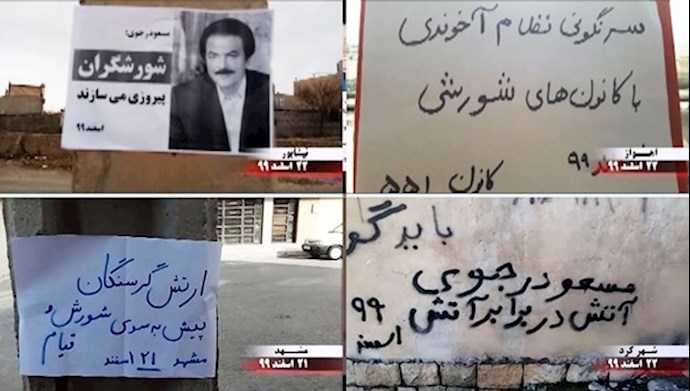 مسعود رجوی:
شورشگران
پیروزی می سازند
اسفند۹۹
نیشابور
۲۲ اسفند ۹۹
سرنگونی نظام آخوندی
با کانون‌های شورشی
۹۹
کانون ۵۵۱
اهواز
۲۲ اسفند ۹۹
ارتش گرسنگان
پیش به سوی شورش و
قیام
مشهد ۲۱ اسفند
مشهد
۲۱ اسفند ۹۹
مسعود رجوی
آتش در برابر آتش
۹۹
اسفند
شهر کرد
۲۲ اسفند ۹۹